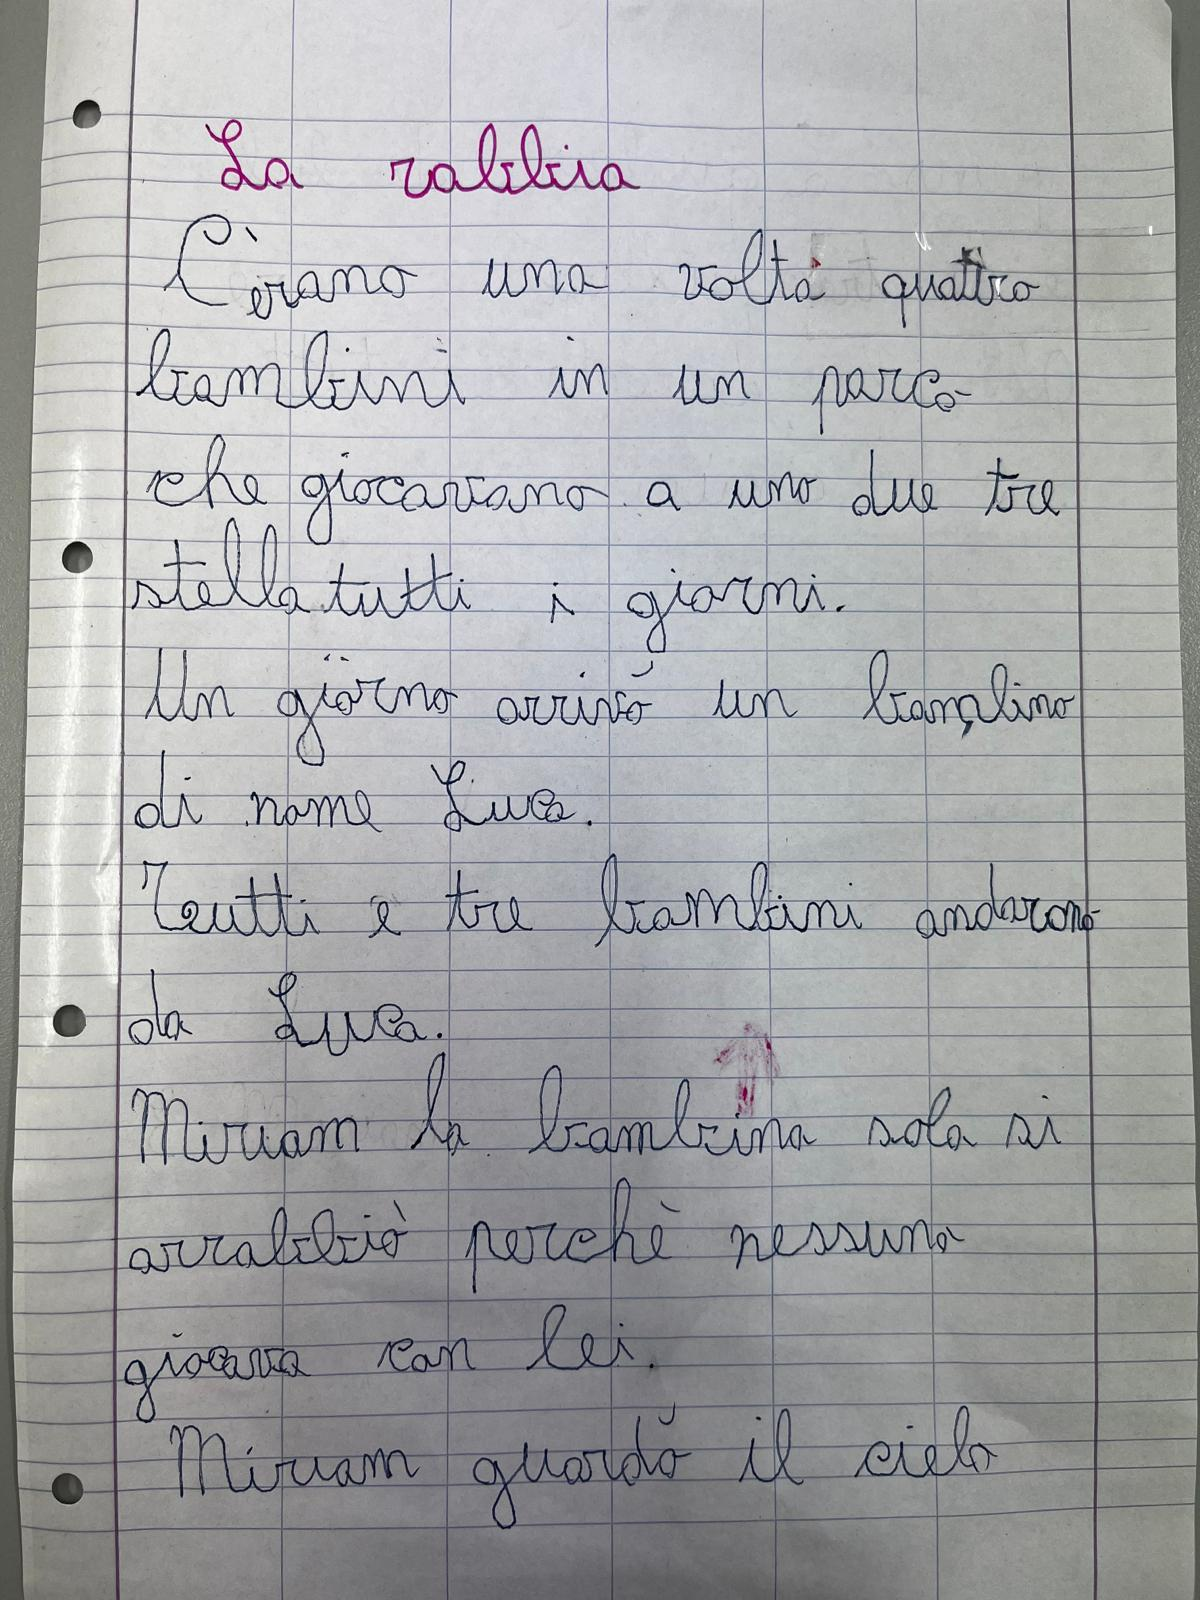 La rabbia
C'erano una volta quattro
bambini in un parco
che giocavano a uno due tre
stella tutti i giorni.
Un giorno arrivò un bambino
di nome Luca.
Tutti e tre bambini andarono
da Luca.
Miriam la bambina sola si
arrabbiò perchè nessuno
giocava con lei.
Miriam guardò il cielo